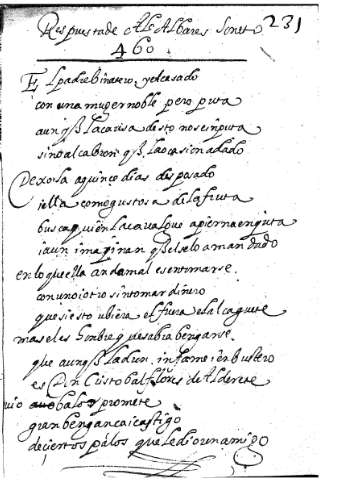 Respuesta de Ale Albares Soneto 231
460
El padre binatero, y el casado
con una muger noble pero puta
aunqs la causa desto no se inputa
sino al cabron qs la ocasion a dado
Dexola a quince dias desposado
i ella como gustosa de la fruta
busca quien la cavalgue a pierna enjuta
i aun imaginan qs el se lo a mandado
en lo que ella anda mal es en tomarse
con uno i otro sin tomar dinero
que si esto ubiera el fuera el alcaguete
mas el es hombre q desabia bengarse
que aunqs ladron, infame i enbustero
es Don Cristobal flores de Alderete
promete
gran bengança i castigo
de cientos palos que le dio un amigo